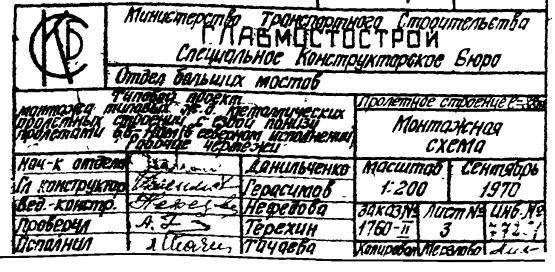 Министерство Транспортного Строительства
ГЛАВМОСТОСТРОЙ
Специальное Конструкторское Бюро
Отдел больших мостов
Типовой проект
монтажа типовых ж.д. металлических
пролетных строений с ездой понизу
пролетами (в северном исполнении)
Рабочие чертежи
Пролетное строение
Монтажная
схема
Нач-к отдела Данильченко
Гл. конструктор Герасимов
Вед. констр. Нефедова
Проверил Терехин
Исполнил Тачаева
Масштаб Сентябрь
1:200 1970
Заказ № Лист № Инв. №
1760-II 3
Копировал Мерзлова